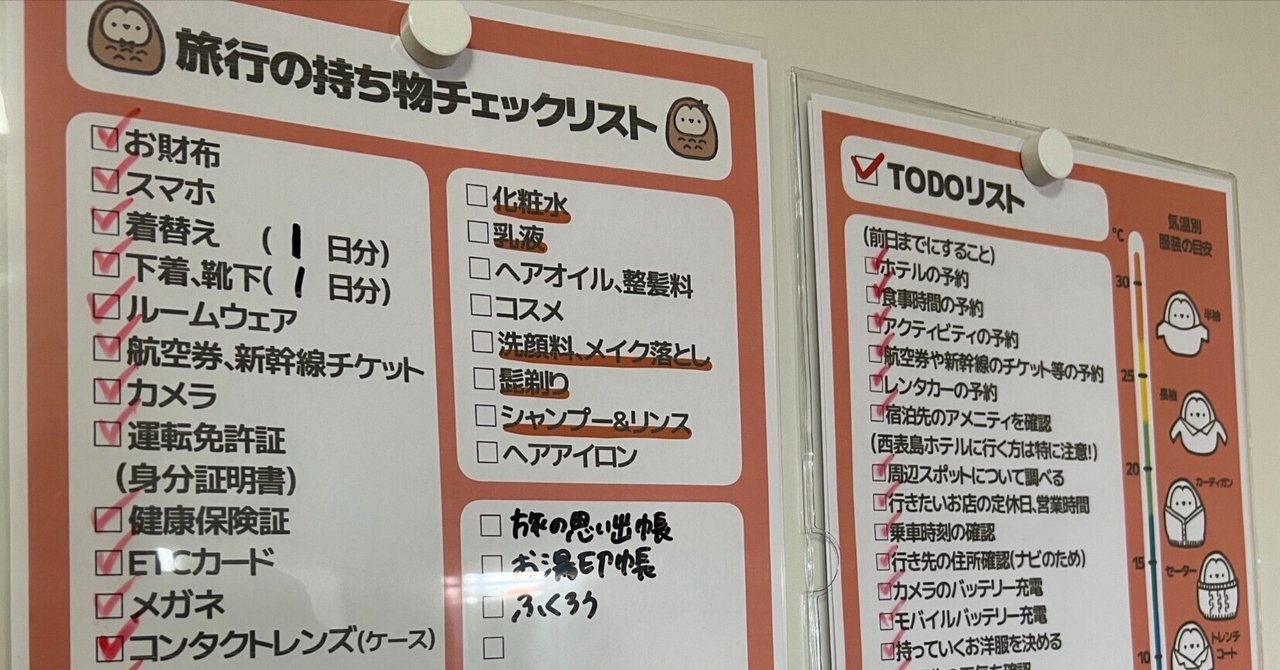 旅行の持ち物チェックリスト
お財布
スマホ
着替え (1日分)
下着、靴下(1日分)
ルームウェア
航空券、新幹線チケット
カメラ
運転免許証
(身分証明書)
健康保険証
ETCカード
メガネ
コンタクトレンズ(ケース)
化粧水
乳液
ヘアオイル、整髪料
コスメ
洗顔料、メイク落とし
髭剃り
シャンプー&リンス
ヘアアイロン
旅の思い出帳
お湯印帳
ふくろう
TODOリスト
(前日までにすること)
ホテルの予約
食事時間の予約
アクティビティの予約
航空券や新幹線のチケット等の予約
レンタカーの予約
宿泊先のアメニティを確認
(西表島ホテルに行く方は特に注意!)
周辺スポットについて調べる
行きたいお店の定休日、営業時間
乗車時刻の確認
行き先の住所確認(ナビのため)
カメラのバッテリー充電
モバイルバッテリー充電
持っていくお洋服を決める
気温別
服装の目安
℃
30
半袖
25
長袖
20
カーディガン
15
セーター
トレンチ
コート
10